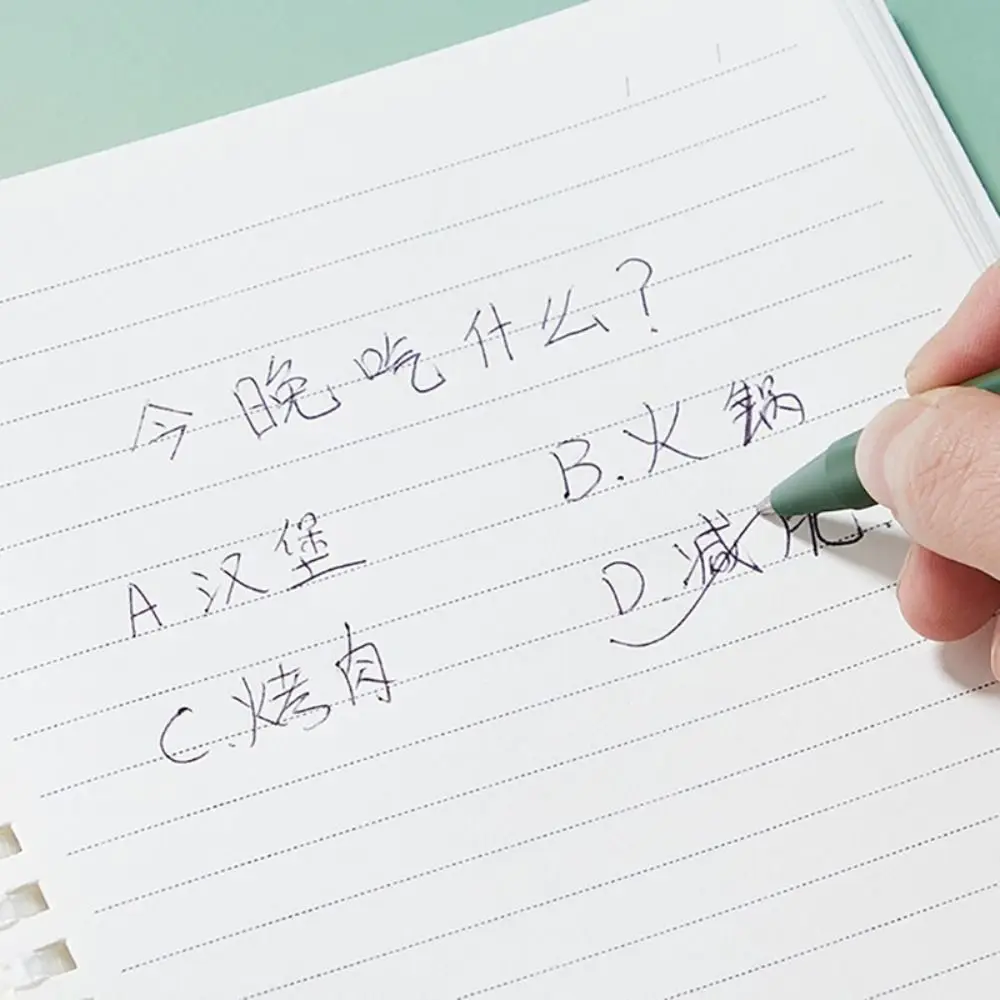 今晚吃什么?
A 汉堡 B.火锅
C.烤肉 D.减肥